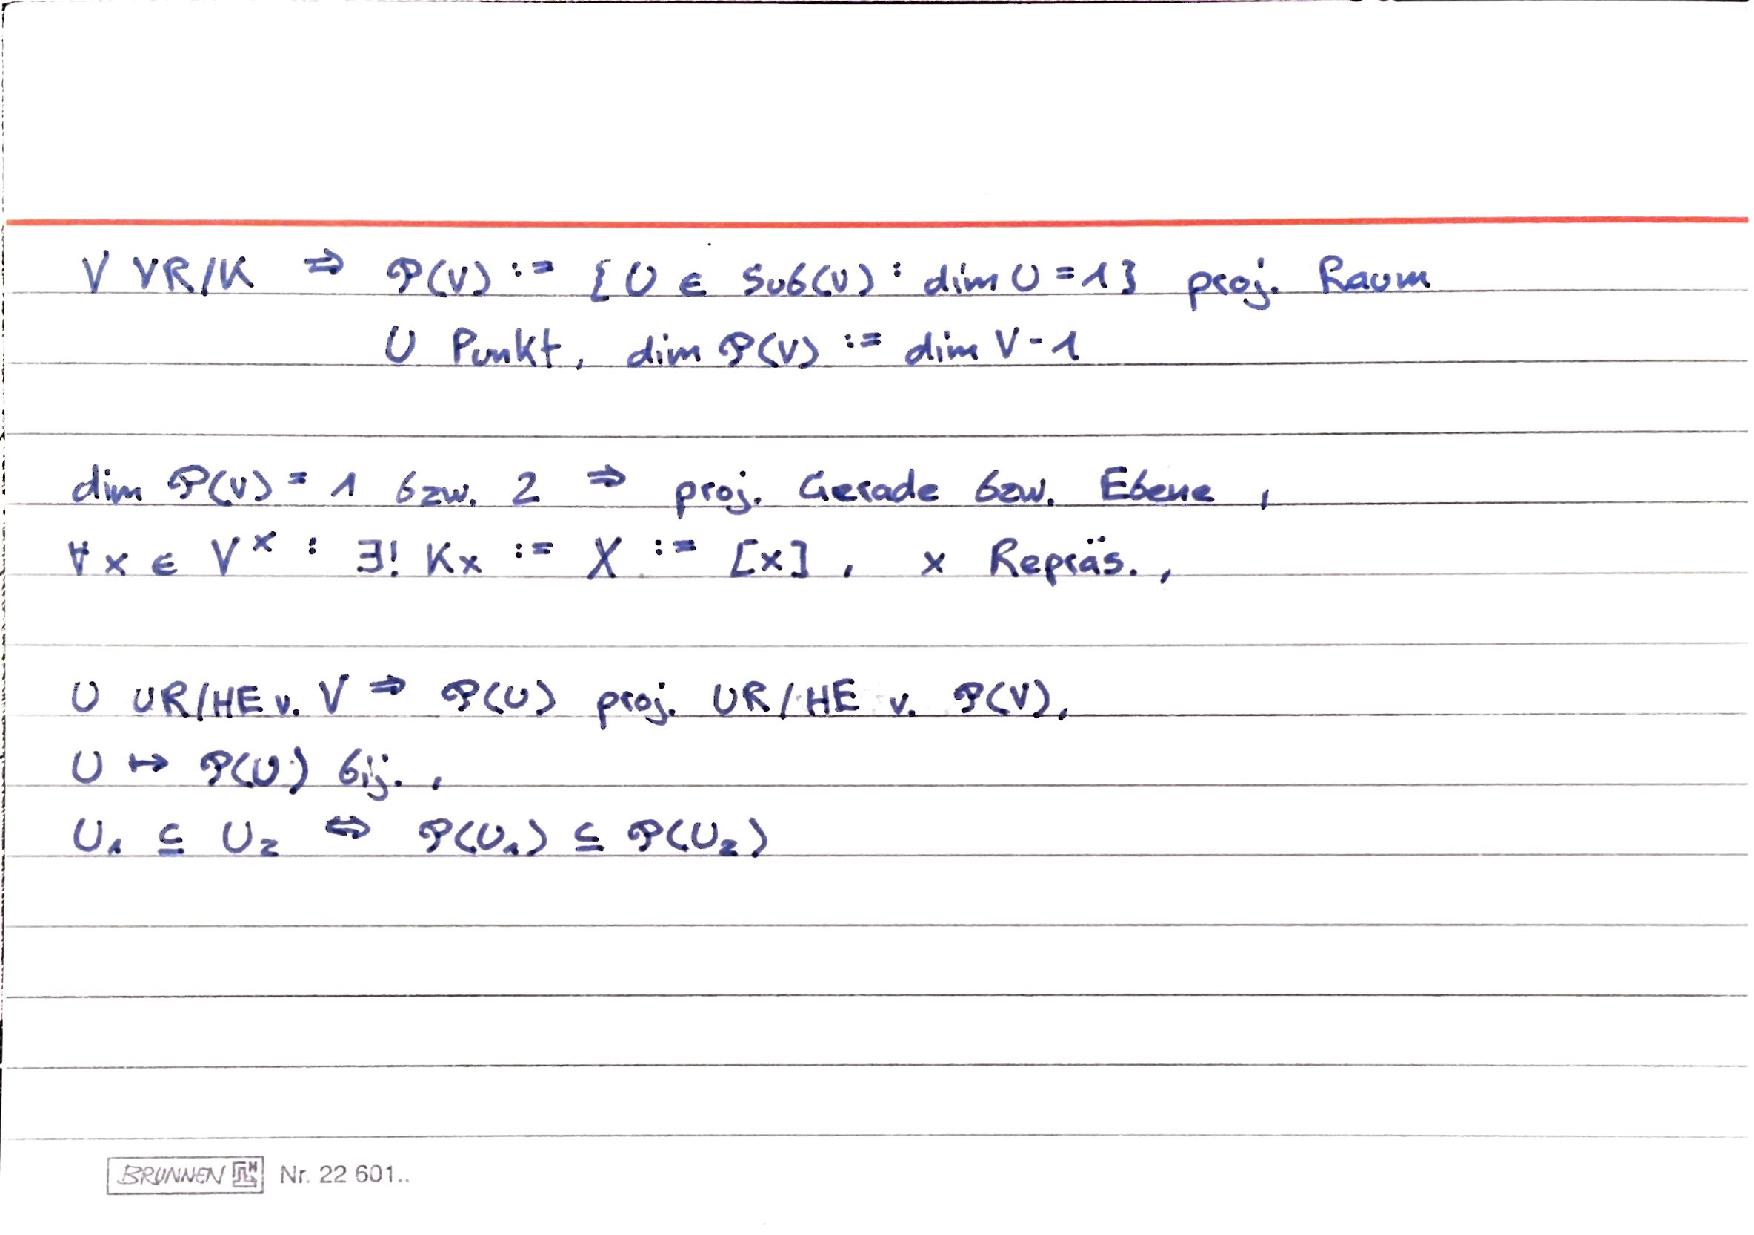 V VR/K ⇒ P(V) := {U ∈ Sub(V) : dim U = 1} proj. Raum
U Punkt, dim P(V) := dim V - 1
dim P(V) = 1 bzw. 2 ⇒ proj. Gerade bzw. Ebene,
∀x ∈ V^× : ∃! Kx := X := [x], x Repräs.,
U UR/HE v. V ⇒ P(U) proj. UR/HE v. P(V),
U ↦ P(U) bij.,
U₁ ⊆ U₂ ⇔ P(U₁) ⊆ P(U₂)
BRUNNEN Nr. 22 601..